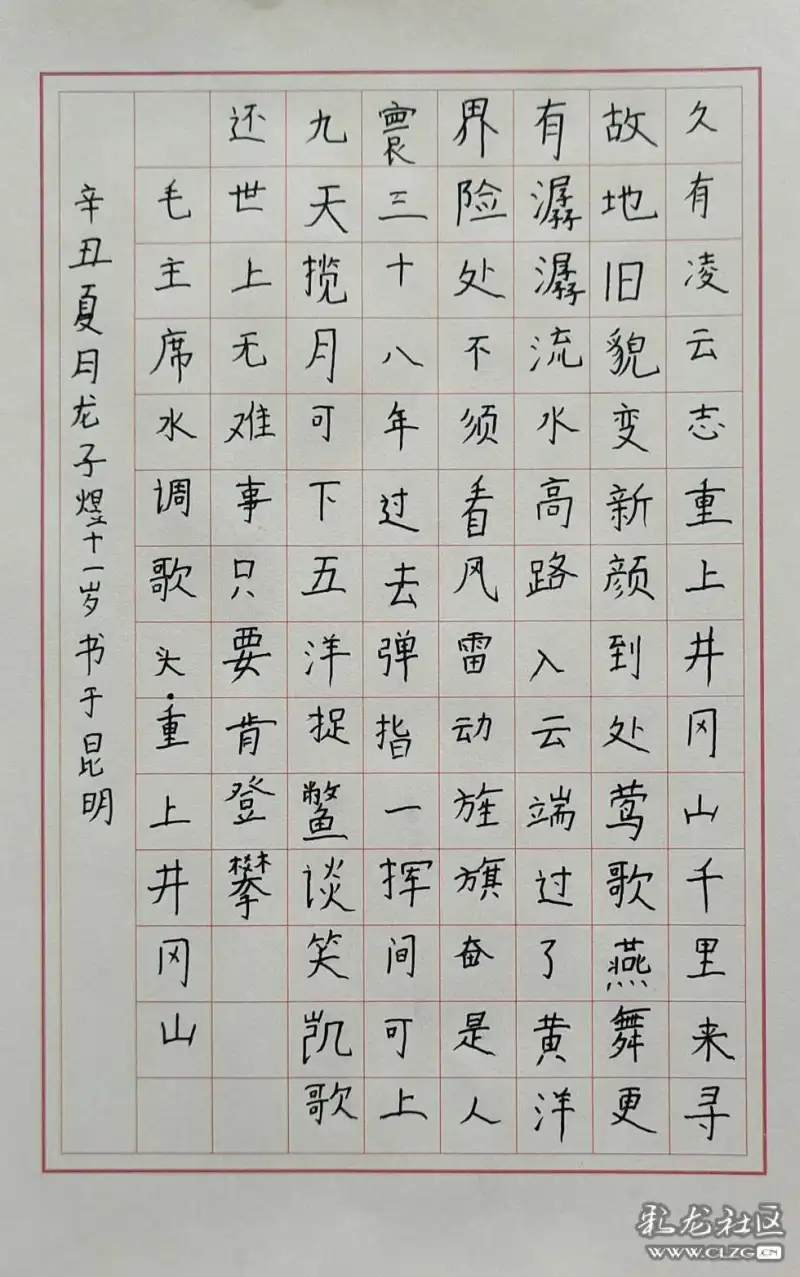 久有凌云志重上井冈山千里来寻
故地旧貌变新颜到处莺歌燕舞更
有潺潺流水高路入云端过了黄洋
界险处不须看风雷动旌旗奋是人
寰三十八年过去弹指一挥间可上
九天揽月可下五洋捉鳖谈笑凯歌
还世上无难事只要肯登攀
毛主席水调歌头·重上井冈山
辛丑夏月龙子煜十一岁书于昆明
彩龙社区
www.CLZG.CN